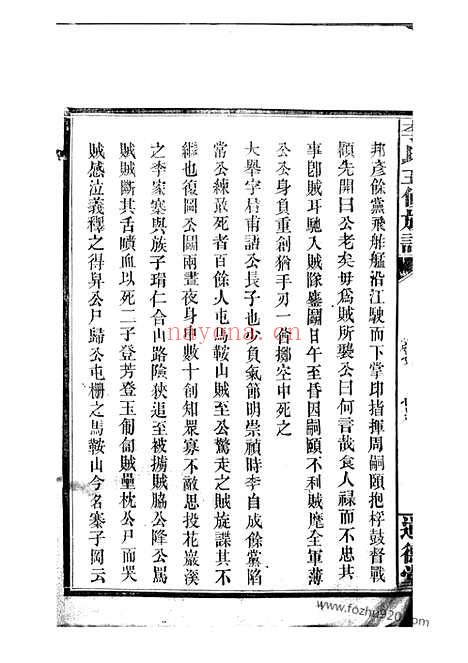 李氏五修族譜
邦彥餘黨飛舸艋沿江駛而下掌印指揮周嗣頤抱桴鼓督戰
頤先開曰公老矣毋爲賊所襲公曰何言哉食人祿而不忠其
事卽賊耳馳入賊隊鏖鬭日午至昏因嗣頤不利賊麾全軍薄
公公身負重創猶手刃一
大舉字 甫諸公長子也少負氣節明崇禎時李自成餘黨陷
常公練敢死者百餘人屯馬鞍山賊至公驚走之賊旋諜其不
繼也復圍公鬭兩晝夜身中數十創知眾寡不敵思投花巖溪
之李家寨與族子珸仁合山路險狹追至被擄賊脇公降公罵
賊賊斷其舌噴血以死二子登芳登玉匍匐賊壘枕公尸而哭
賊感泣義釋之得舁公尸歸公屯柵之馬鞍山今名寨子岡云
nayona.cn
www.fozhu920.com